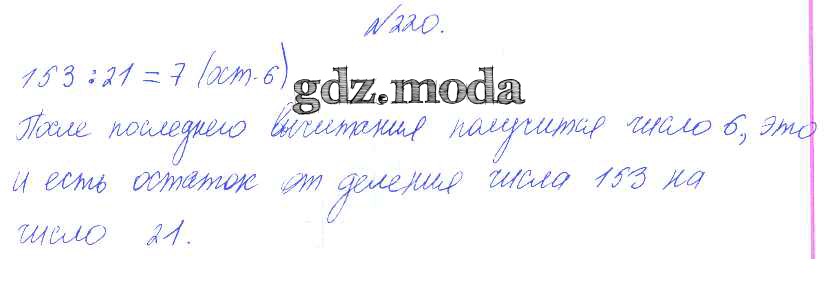 №220.
153 : 21 = 7 (ост. 6)
gdz.moda
После последнего вычитания получится число 6, это
и есть остаток от деления числа 153 на
число 21.